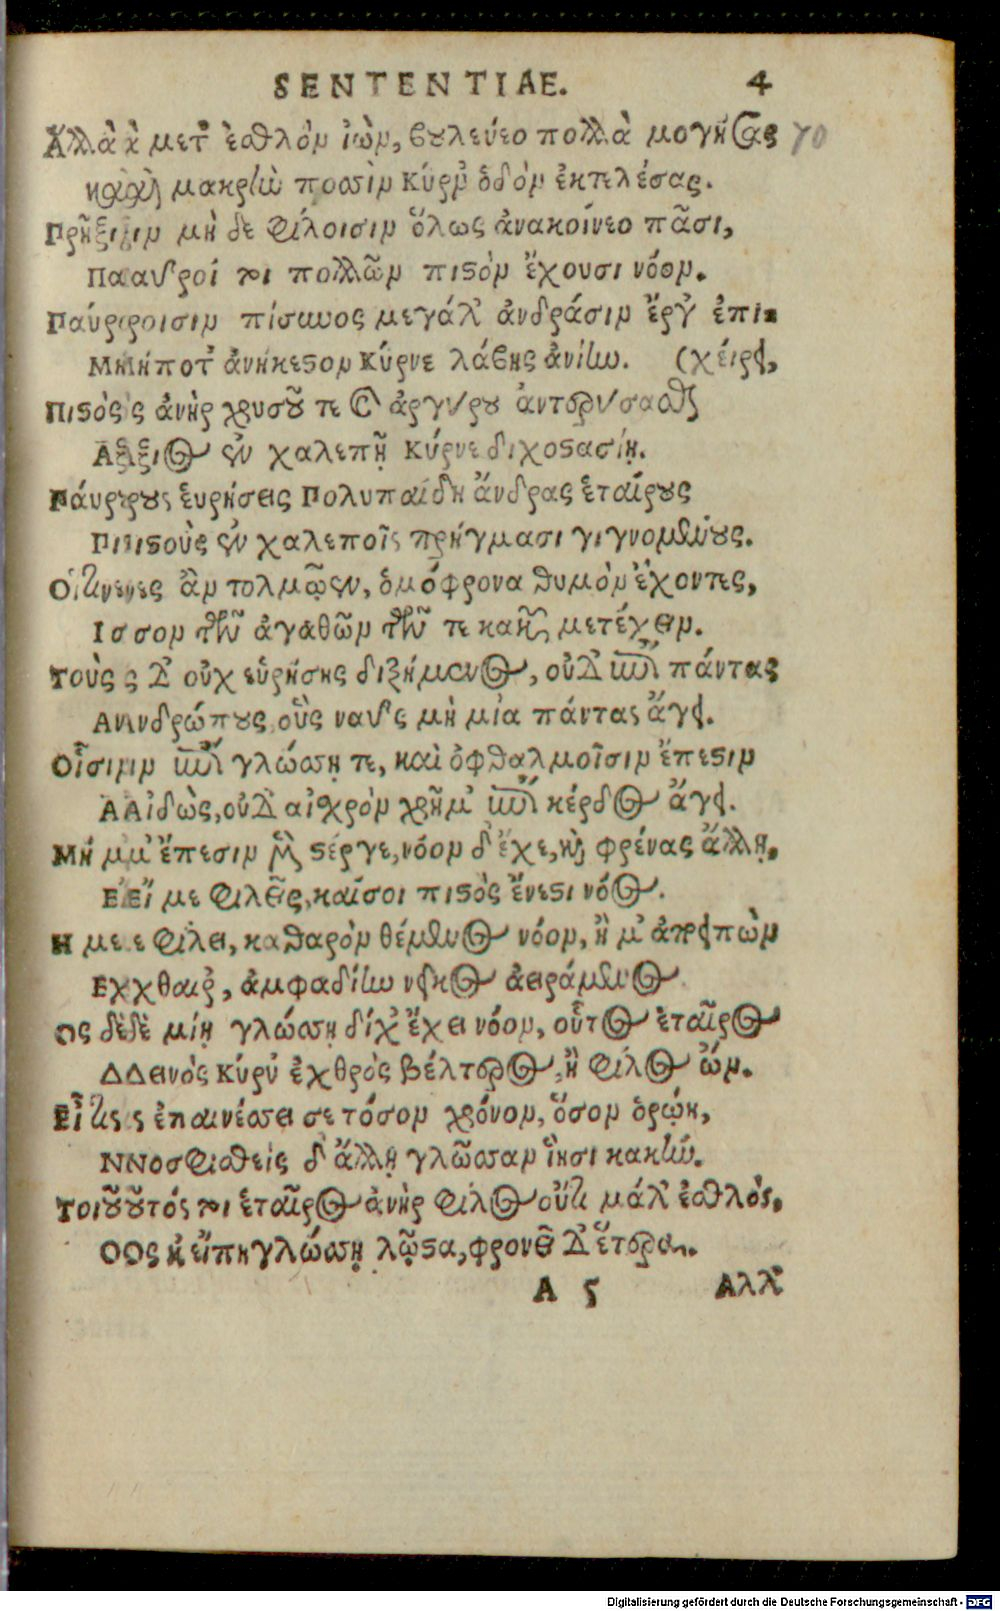 SENTENTIAE. 4
Ἀλλὰ μετ' ἐσθλὸν ἰὼν, βουλεύεο πολλὰ μογήσας 70
καὶ μακρὴν ποσσὶν Κύρν' ὁδὸν ἐκτελέσας.
Πρῆξιν μὴ δὲ φίλοισιν ὅλως ἀνακοίνεο πᾶσι,
Παῦροί τοι πολλῶν πιστὸν ἔχουσι νόον.
Παύροισιν πίσυνος μεγάλ' ἀνδράσιν ἔργ' ἐπι-
Μήποτ' ἀνήκεστον Κύρνε λάβης ἀνίην. (χείρει,
Πιστὸς ἀνὴρ χρυσοῦ τε καὶ ἀργύρου ἀντερύσασθαι
Ἄξιος ἐν χαλεπῇ Κύρνε διχοστασίῃ.
Παύρους εὑρήσεις Πολυπαίδη ἄνδρας ἑταίρους
Πιστοὺς ἐν χαλεποῖς πρήγμασι γιγνομένους.
Οἵτινες ἂν τολμῷεν, ὁμόφρονα θυμὸν ἔχοντες,
Ισσον τῶν ἀγαθῶν τῶν τε κακῶν μετέχειν.
Τοὺς δ' οὐχ εὑρήσης διζήμενος, οὐδ' ἐπὶ πάντας
Ανδρώπους, οὓς ναῦς μὴ μία πάντας ἄγει.
Οἷσιν ἐπὶ γλώσσῃ τε, καὶ ὀφθαλμοῖσιν ἔπεστιν
Αἰδὼς, οὐδ' αἰσχρὸν χρῆμ' ἐπὶ κέρδος ἄγει.
Μή μ' ἔπεσιν μὲν στέργε, νόον δ' ἔχε, καὶ φρένας ἄλλῃ.
Εἴ με φιλεῖς, καί σοι πιστὸς ἔνεστι νόος.
Η με φίλει, καθαρὸν θέμενος νόον, ἢ μ' ἀπειπὼν
Εχθαιρ', ἀμφαδίην νεῖκος ἀειράμενος.
Ος δὲ μίῃ γλώσσῃ δίχ' ἔχει νόον, οὗτος ἑταῖρος
Δεινὸς Κύρν' ἐχθρὸς βέλτερος, ἢ φίλος ὤν.
Εἴ τις ἐπαινέσσει σε τόσον χρόνον, ὅσον ὁρῴη,
Νοσφισθεὶς δ' ἄλλῃ γλῶσσαν ἵησι κακήν.
Τοιοῦτός τοι ἑταῖρος ἀνὴρ φίλος οὔτι μάλ' ἐσθλὸς.
Ος κ' εἴπῃ γλώσσῃ λῷστα, φρονεῖ δ' ἕτερα.
A 5 Αλλ'
Digitalisierung gefördert durch die Deutsche Forschungsgemeinschaft - DFG